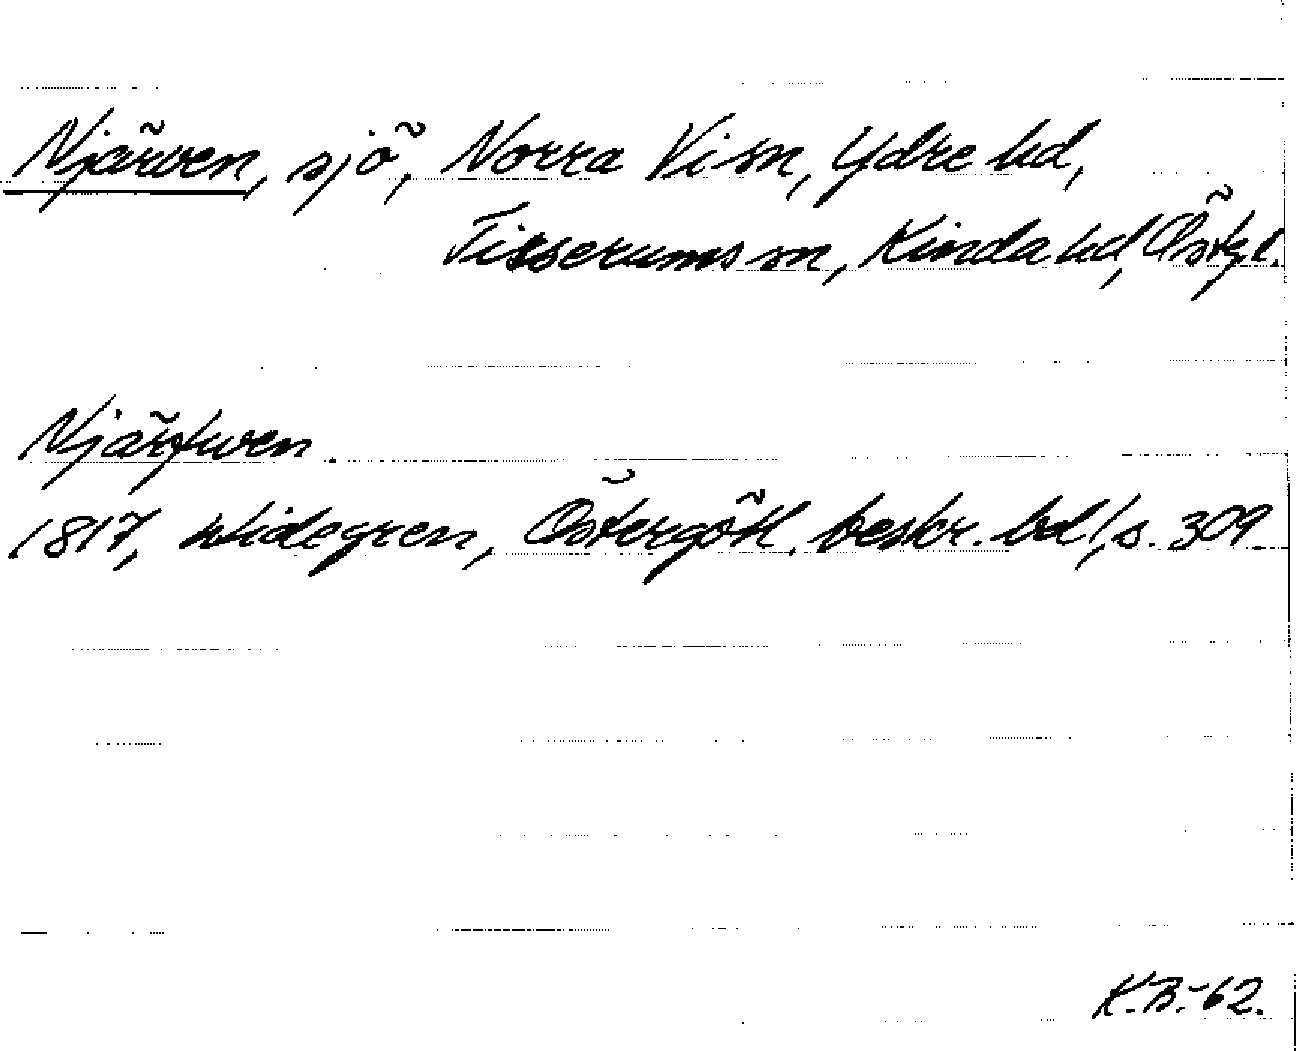 Njärven, sjö, Norra Vi sn, Ydre hd,
Tisserums sn, Kinda hd, Östgl.
Njärfwen.
1817, Widegren, Östergötl. beskr. bd 1, s. 309
K.B.-62.